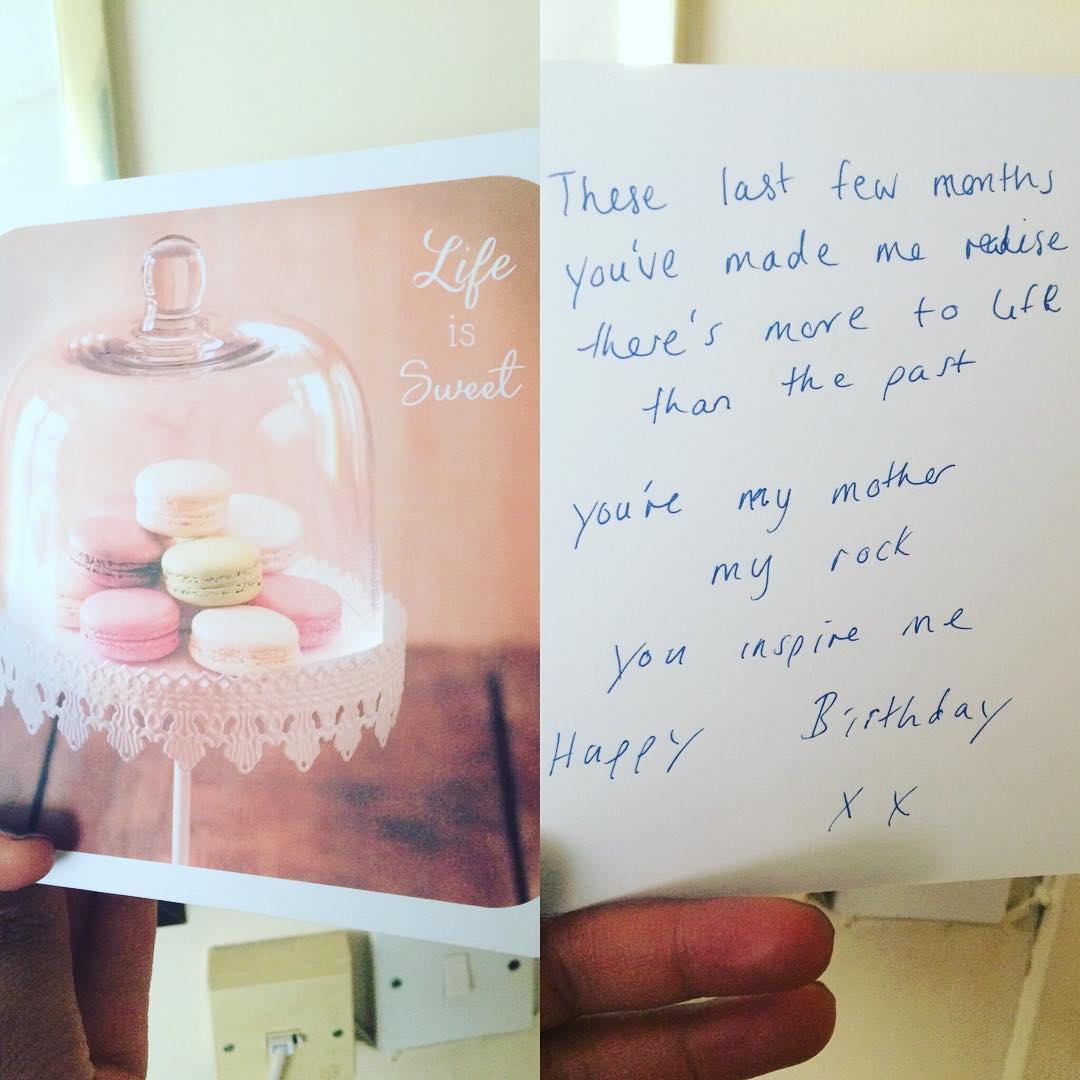 Life
is
Sweet
These last few months
you've made me realise
there's more to life
than the past
you're my mother
my rock
you inspire me
Happy Birthday
x x